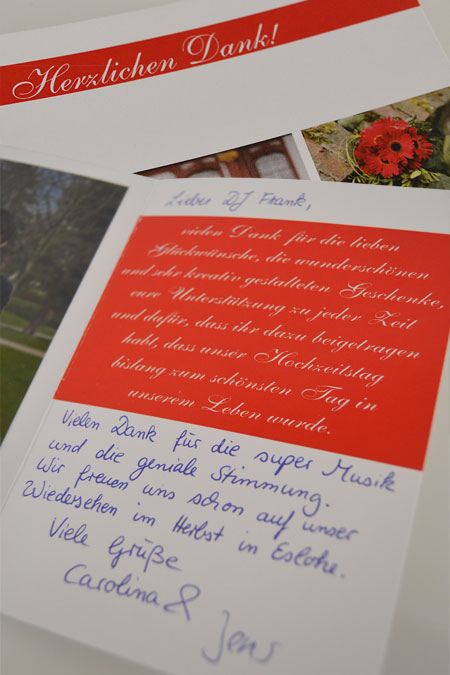 Herzlichen Dank!
Lieber DJ Frank,
vielen Dank für die lieben
Glückwünsche, die wunderschönen
und sehr kreativ gestalteten Geschenke,
eure Unterstützung zu jeder Zeit
und dafür, dass ihr dazu beigetragen
habt, dass unser Hochzeitstag
bislang zum schönsten Tag in
unserem Leben wurde.
Vielen Dank für die super Musik
und die geniale Stimmung.
Wir freuen uns schon auf unser
Wiedersehen im Herbst in Eslohe.
Viele Grüße
Carolina &
Jens